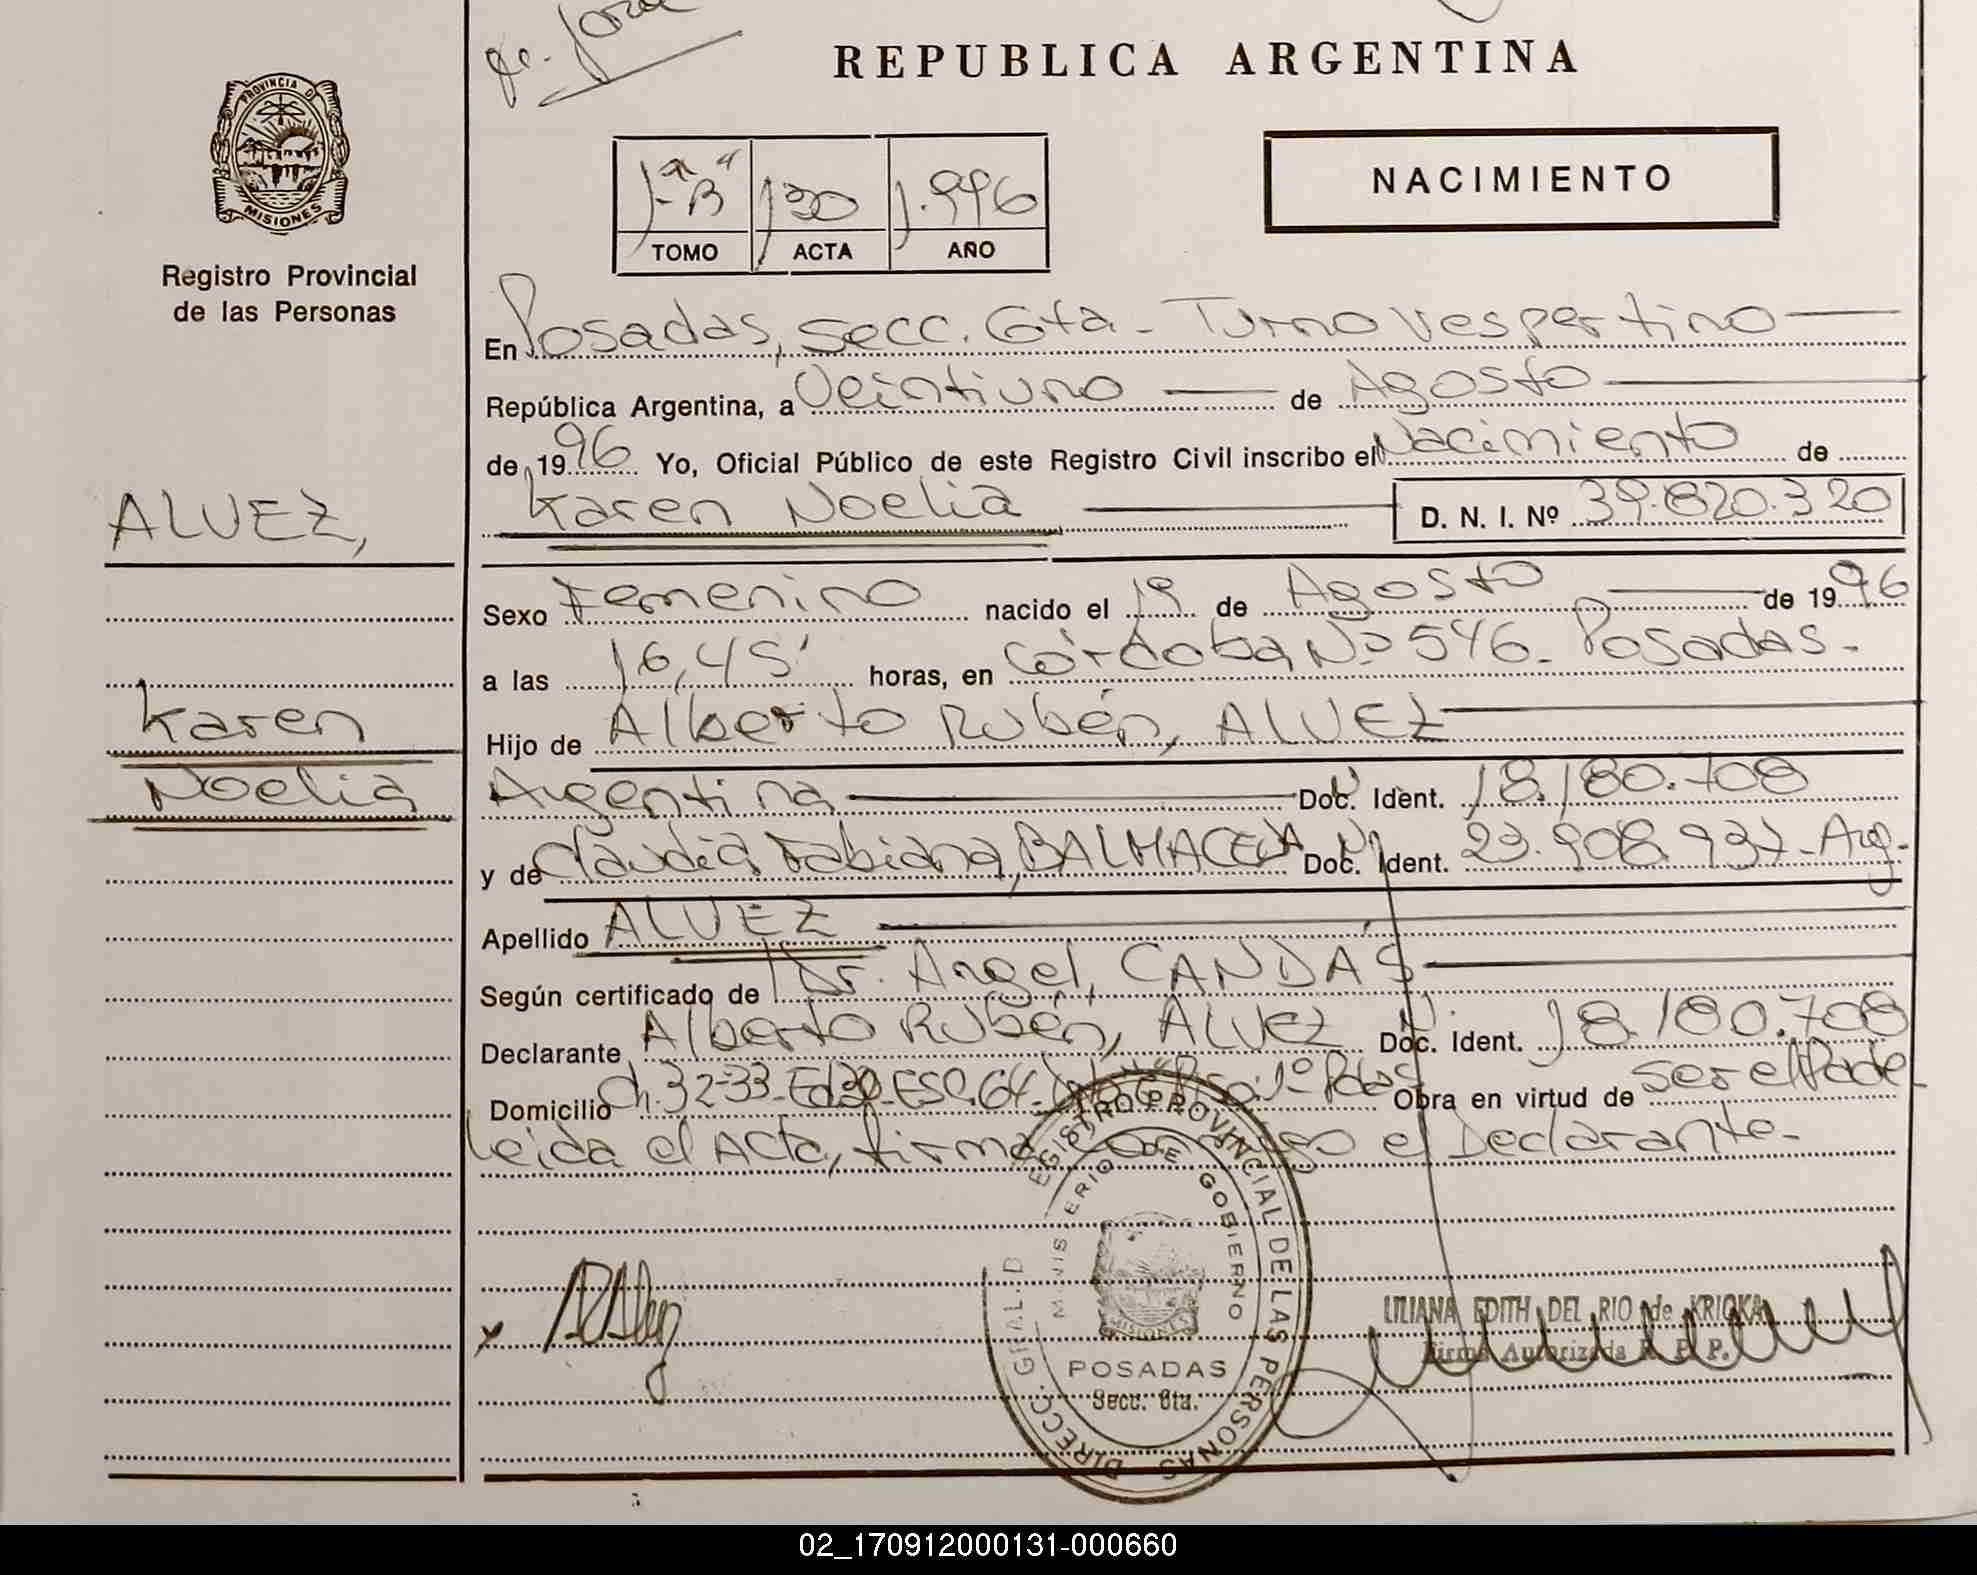 REPUBLICA ARGENTINA
PROVINCIA D
MISIONES
Registro Provincial
de las Personas
1-"B" 130 1.996
TOMO ACTA AÑO
NACIMIENTO
En Posadas, secc. 6ta - Turno Vespertino
República Argentina, a Veintiuno de Agosto
de 1996 Yo, Oficial Público de este Registro Civil inscribo el Nacimiento de
Karen Noelia D. N. I. Nº 39.820.320
ALVEZ,
Karen
Noelia
Sexo Femenino nacido el 19 de Agosto de 1996
a las 16,45' horas, en Córdoba Nº 546. Posadas.
Hijo de Alberto Rubén, ALVEZ
Argentina Doc. Ident. 18.180.708
y de Claudia Fabiana, BALMACEDA Doc. Ident. 23.908.937-Arg.
Apellido ALVEZ
Según certificado de Dr. Angel, CANDAS
Declarante Alberto Rubén, ALVEZ Doc. Ident. 18.180.708
Domicilio Ch. 32-33-Ed. Esc. 64- Obra en virtud de ser el Padre
Leida el Acta, firma el Declarante-
REGISTRO PROVINCIAL DE LAS PERSONAS
DIRECC. GRAL. D
MINISTERIO DE GOBIERNO
MISIONES
POSADAS
Secc. 6ta.
LILIANA EDITH DEL RIO de KRIOKA
Firma Autorizada R. P. P.
02_170912000131-000660